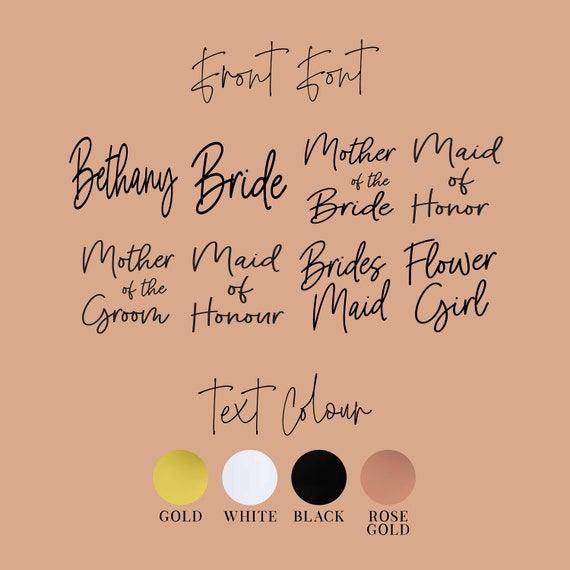 Front Font
Bethany
Bride
Mother
of the
Bride
Maid
of
Honor
Mother
of the
Groom
Maid
of
Honour
Brides
Maid
Flower
Girl
Text Colour
GOLD
WHITE
BLACK
ROSE
GOLD